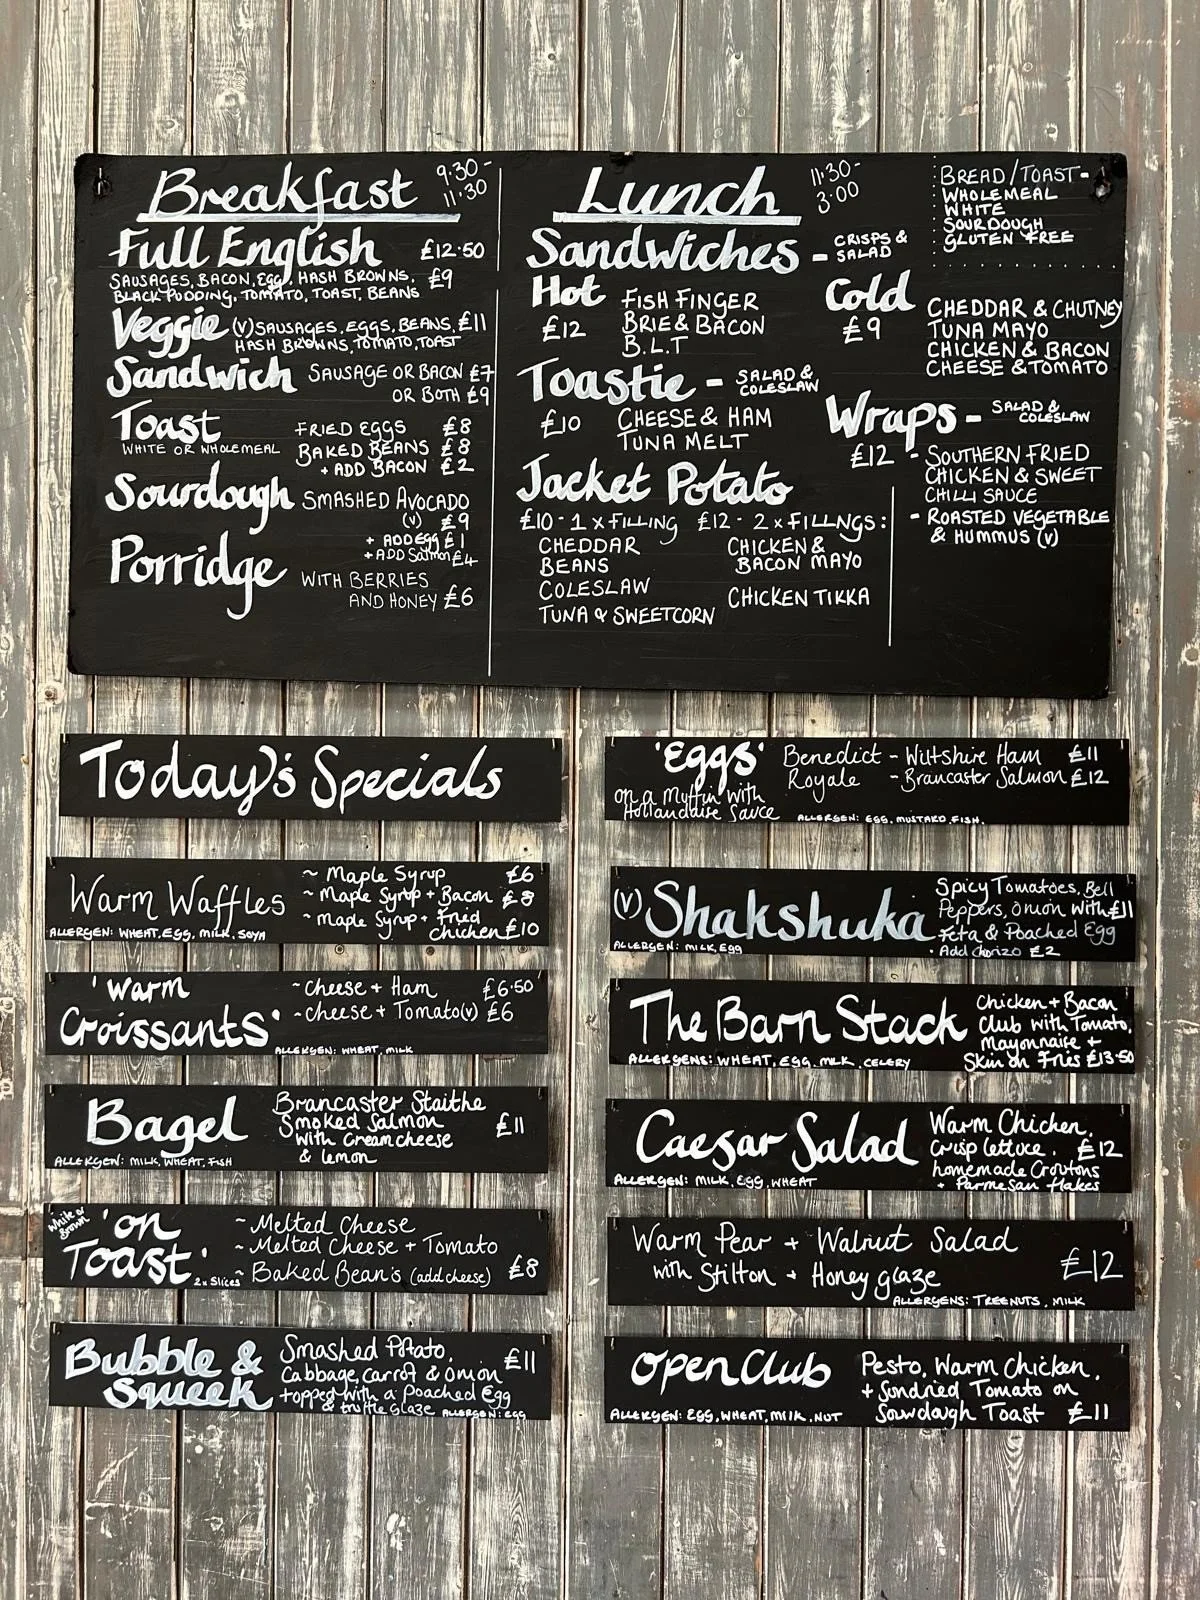 Breakfast 9.30-
11.30
Full English £12.50
SAUSAGES, BACON, Egg, HASH BROWNS, £9
BLACK PUDDING, TOMATO, TOAST, BEANS
Veggie (V) SAUSAGES, EGGS, BEANS, £11
HASH BROWNS, TOMATO, TOAST
Sandwich SAUSAGE OR BACON £7
OR BOTH £9
Toast FRIED EGGS £8
WHITE OR WHOLEMEAL BAKED BEANS £8
+ ADD BACON £2
Sourdough SMASHED AVOCADO
(V) £9
+ ADD Egg £1
+ ADD Salmon £4
Porridge WITH BERRIES
AND HONEY £6
Lunch 11:30-
3:00
BREAD/TOAST-
WHOLEMEAL
WHITE
SOURDOUGH
GLUTEN FREE
Sandwiches - CRISPS &
SALAD
Hot FISH FINGER
£12 BRIE & BACON
B.L.T
Cold CHEDDAR & CHUTNEY
£9 TUNA MAYO
CHICKEN & BACON
CHEESE & TOMATO
Toastie - SALAD &
COLESLAW
£10 CHEESE & HAM
TUNA MELT
Wraps - SALAD &
COLESLAW
£12 - SOUTHERN FRIED
CHICKEN & SWEET
CHILLI SAUCE
- ROASTED VEGETABLE
& HUMMUS (V)
Jacket Potato
£10 - 1 x FILLING £12 - 2 x FILLNGS:
CHEDDAR CHICKEN &
BEANS BACON MAYO
COLESLAW CHICKEN TIKKA
TUNA & SWEETCORN
Today's Specials
Warm Waffles ~ Maple Syrup £6
~ Maple Syrup + Bacon £8
~ Maple Syrup + Fried
Chicken £10
ALLERGEN: WHEAT, EGG, MILK, SOYA
'Warm
Croissants'
~ Cheese + Ham £6.50
~ Cheese + Tomato (v) £6
ALLERGEN: WHEAT, MILK
Bagel Brancaster Staithe
Smoked Salmon £11
with Creamcheese
& lemon
ALLERGEN: MILK, WHEAT, FISH
White or
Brown
'on
Toast'
2x Slices
~ Melted Cheese
~ Melted Cheese + Tomato
~ Baked Bean's (add cheese) £8
Bubble &
Squeek
Smashed Potato, £11
Cabbage, carrot & onion
topped with a Poached Egg
& truffle Glaze ALLERGEN: EGG
'Eggs' Benedict - Wiltshire Ham £11
Royale - Brancaster Salmon £12
on a Muffin with
Hollandaise Sauce ALLERGEN: EGG, MUSTARD, FISH.
(V) Shakshuka Spicy Tomatoes, Bell
Peppers, Onion with £11
Feta & Poached Egg
• Add Chorizo £2
ALLERGEN: MILK, EGG
The Barn Stack Chicken + Bacon
Club with Tomato,
Mayonnaise +
Skin on Fries £13.50
ALLERGENS: WHEAT, EGG, MLK, CELERY
Caesar Salad Warm Chicken,
Crisp lettuce, £12
homemade Croutons
+ Parmesan flakes
ALLERGEN: MILK, EGG, WHEAT
Warm Pear + Walnut Salad
with Stilton + Honey glaze £12
ALLERGENS: TREENUTS, MILK
Open Club Pesto, Warm Chicken,
+ Sundried Tomato on
Sourdough Toast £11
ALLERGEN: EGG, WHEAT, MILK, NUT